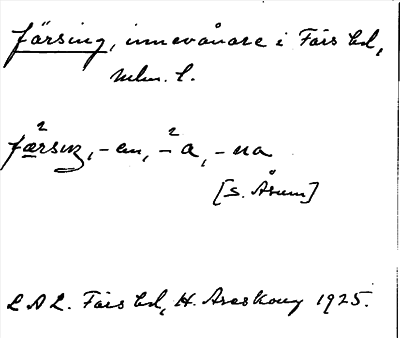 färsing, innevånare i Färs hd,
Mlm. l.
2 2
färsiŋ, -en, -a, -na
[S. Åsum]
L A L. Färs hd, H. Areskoug 1925.